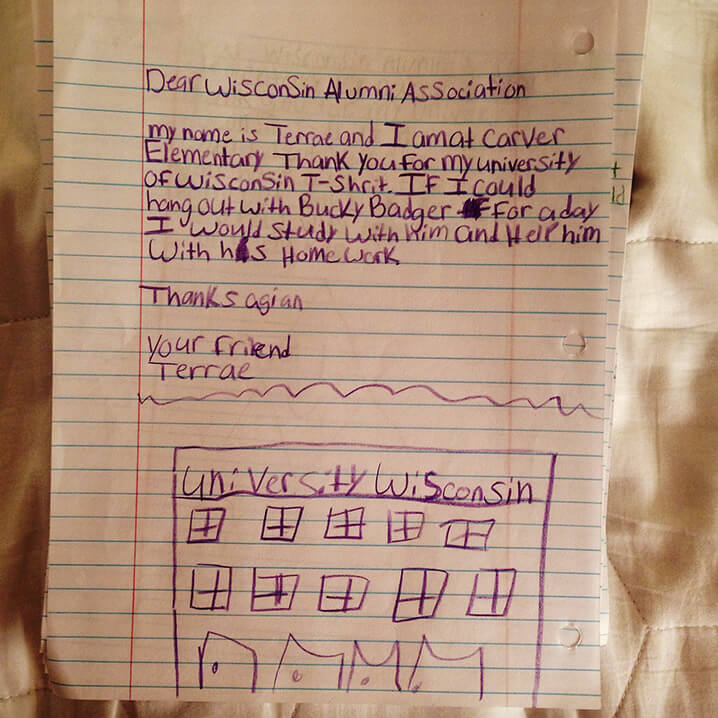 Dear Wisconsin Alumni Association
my name is Terrae and I am at Carver
Elementary Thank you for my university
of Wisconsin T-Shrit. If I could
hang out with Bucky Badger for a day
I would study with him and Help him
with his Home work
Thanks agian
your friend
Terrae
University Wisconsin